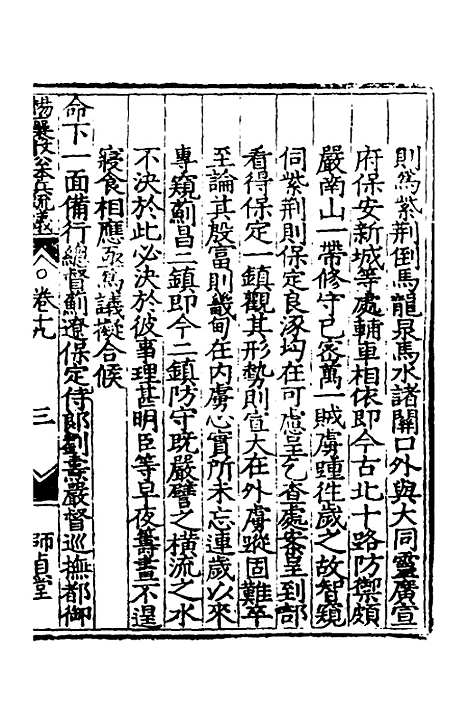 則為紫荆倒馬龍泉馬水諸關口外與大同靈廣宣
府保安新城等處輔車相依即今古北十路防禦頗
嚴南山一帶修守已密萬一賊虜踵徃歲之故智窺
伺紫荆則保定良涿均在可慮呈乞查處案呈到部
看得保定一鎮觀其形勢則宣大在外虜蹤固難卒
至論其殷富則畿甸在内虜心實所未忘連歲以來
專窺薊昌二鎮即今二鎮防守既嚴譬之橫流之水
不決於此必決於彼事理甚明臣等早夜籌畫不遑
寢食相應亟為議擬合候
命下一面備行總督薊遼保定侍郎劉燾嚴督巡撫都御
楊襄毅公本兵疏議
卷十九
三
師貞堂